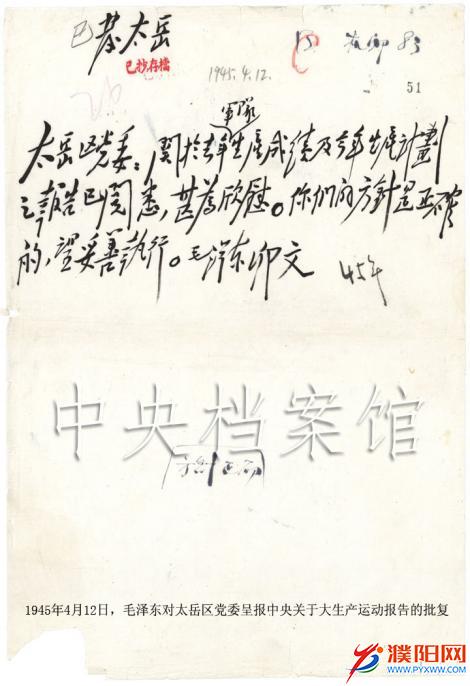 已发太岳
已抄存档
1945.4.12.
51
军队
太岳区党委：关于去年生产成绩及今年生产计划
之报告已阅悉，甚为欣慰。你们的方针是正确
的，望妥善执行。毛泽东卯文
45年
中央档案馆
1945年4月12日，毛泽东对太岳区党委呈报中央关于大生产运动报告的批复
濮阳网
WWW.PYXWW.COM